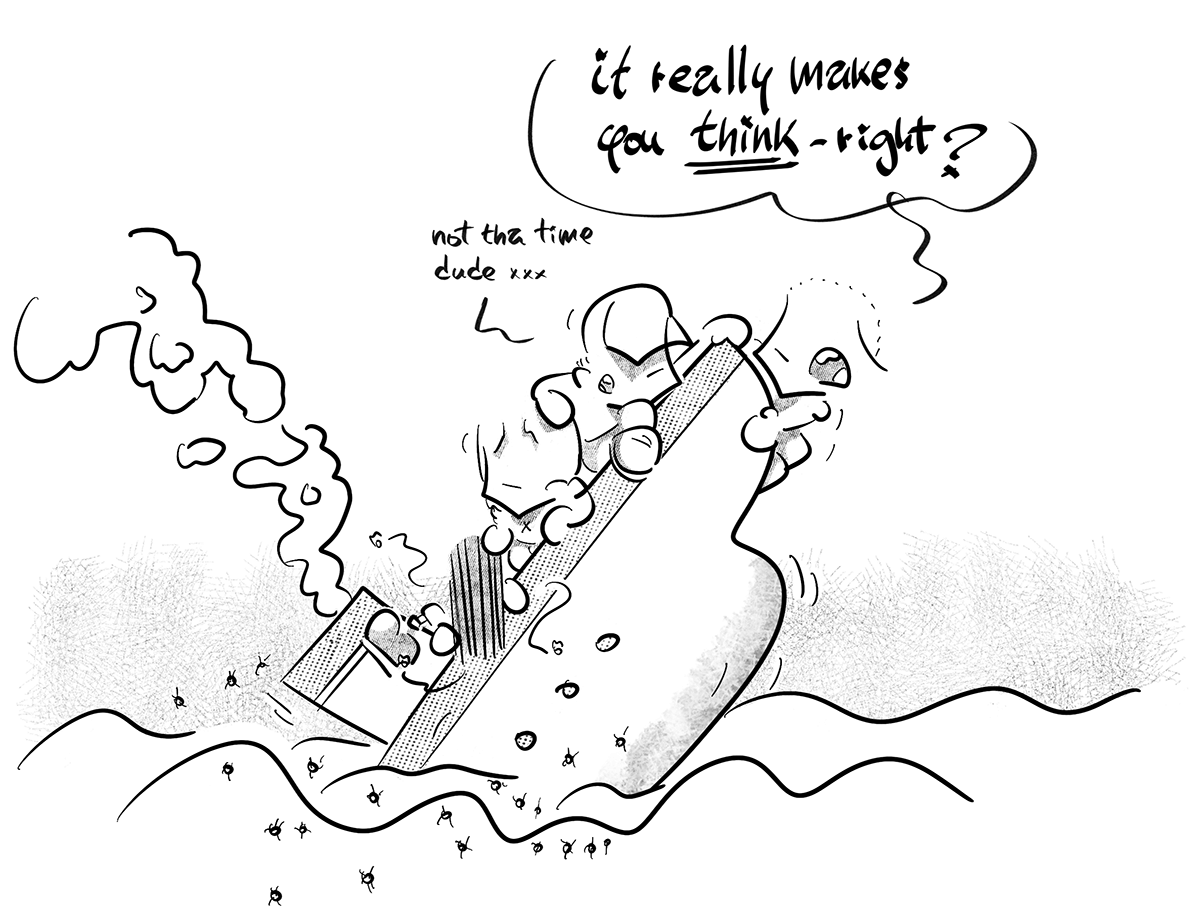 it really makes
you think - right?
not tha time
dude xxx